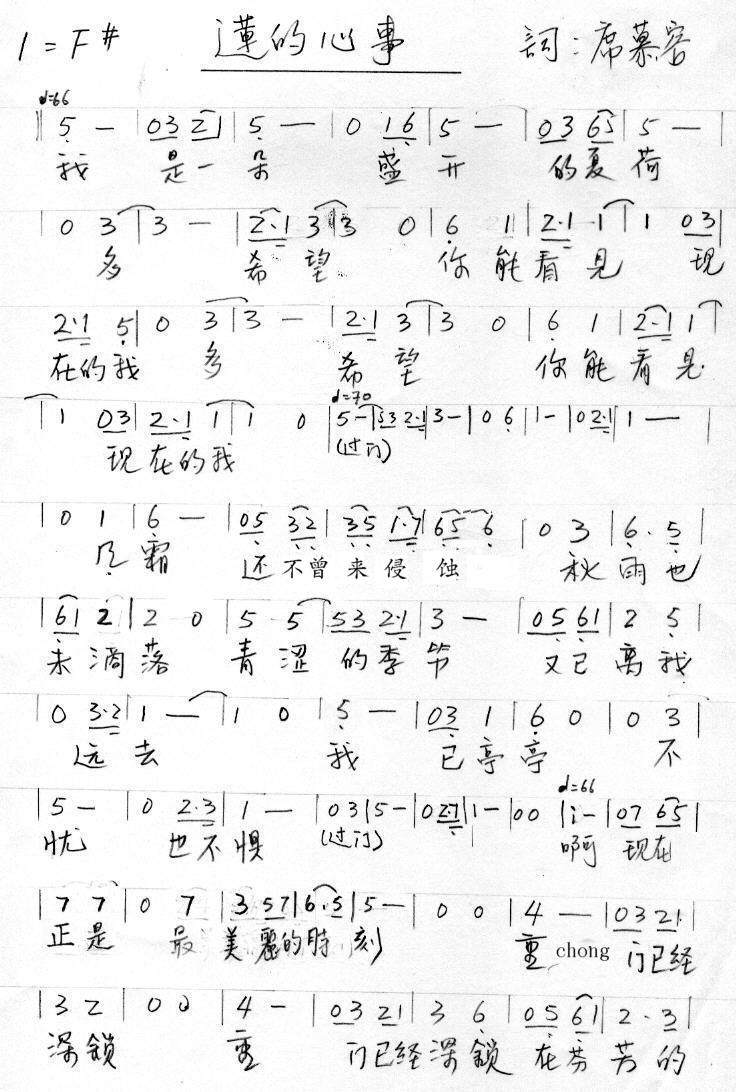 1=F# 蓮的心事 詞:席慕容
♩=66
‖ 5 — | 03 2 | 5 — | 0 16 | 5 — | 03 65 | 5 — |
我 是一 朵 盛 开 的夏 荷
| 0 3 | 3 — | 2·1 3 | 3 0 | 6 1 | 2·1 1 | 1 03 |
多 希 望 你 能 看 見 现
2·1 5 | 0 3 | 3 — | 2·1 3 | 3 0 | 6 1 | 2·1 1 |
在的我 多 希 望 你 能 看 見
♩=70
| 1 03 | 2·1 1 | 1 0 | 5 — | 53 2·1 | 3 — | 0 6 | 1 — | 02·1 | 1 — |
现 在 的 我 (过门)
| 0 1 | 6 — | 05 32 | 35 1·7 | 65 6 | 0 3 | 6· 5 |
风 霜 还 不曾 来 侵 蚀 秋 雨 也
| 61 2 | 2 0 | 5 5 | 53 2·1 | 3 — | 05 61 | 2 5 |
未 滴 落 青 涩 的 季 节 又已 离 我
| 0 3·2 | 1 — | 1 0 | 5 — | 03 1 | 6 0 | 0 3 |
远 去 我 已 亭 亭 不
♩=66
| 5 — | 0 2·3 | 1 — | 03 | 5 — | 02·7 | 1 — | 00 | i — | 07 65 |
忧 也 不 惧 (过门) 啊 现在
| 7 7 | 0 7 | 3 57 | 6·5 | 5 — | 0 0 | 4 — | 03 21 |
正 是 最 美 麗的时 刻 重 chong 门已经
| 3 2 | 0 0 | 4 — | 03 21 | 3 6 | 05 61 | 2·3 |
深 鎖 重 门已经 深 鎖 在芬 芳 的